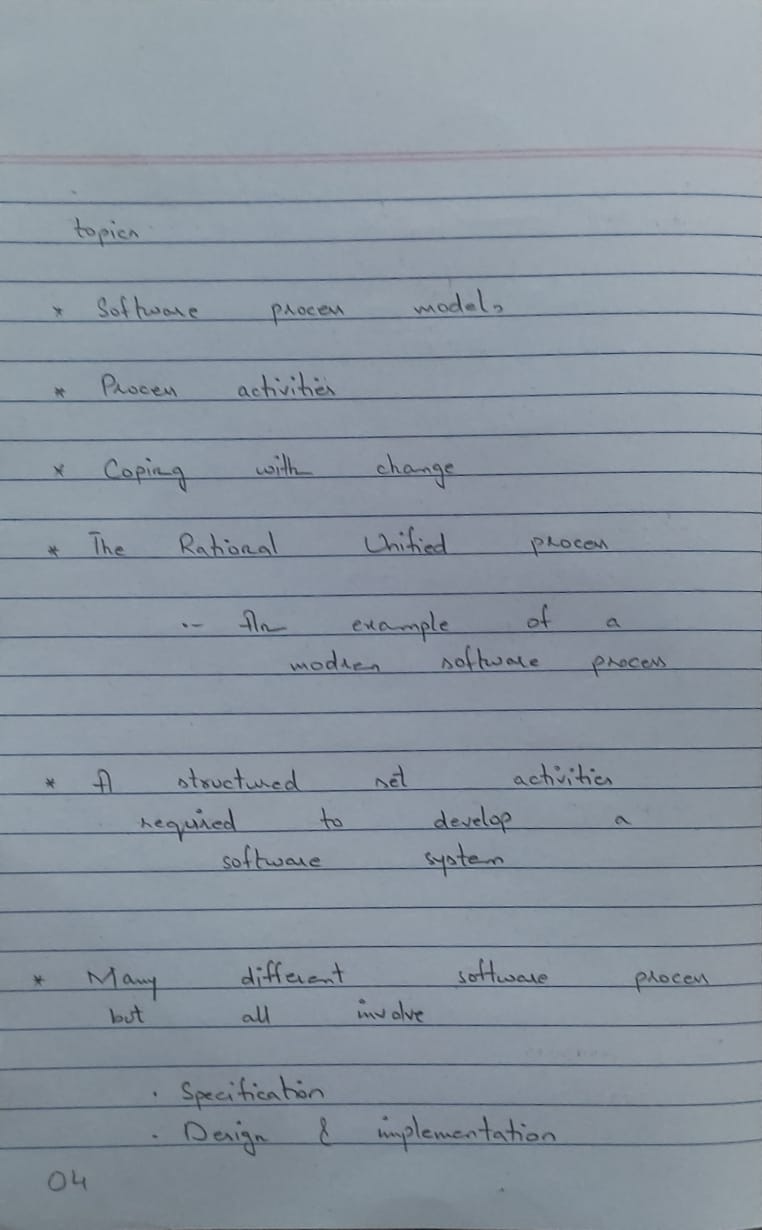 topics
* Software process models
* Process activities
* Coping with change
* The Rational Unified process
:- An example of a
modren software process
* A structured set activities
required to develop a
software system
* Many different software process
but all involve
· Specification
· Design & implementation
04